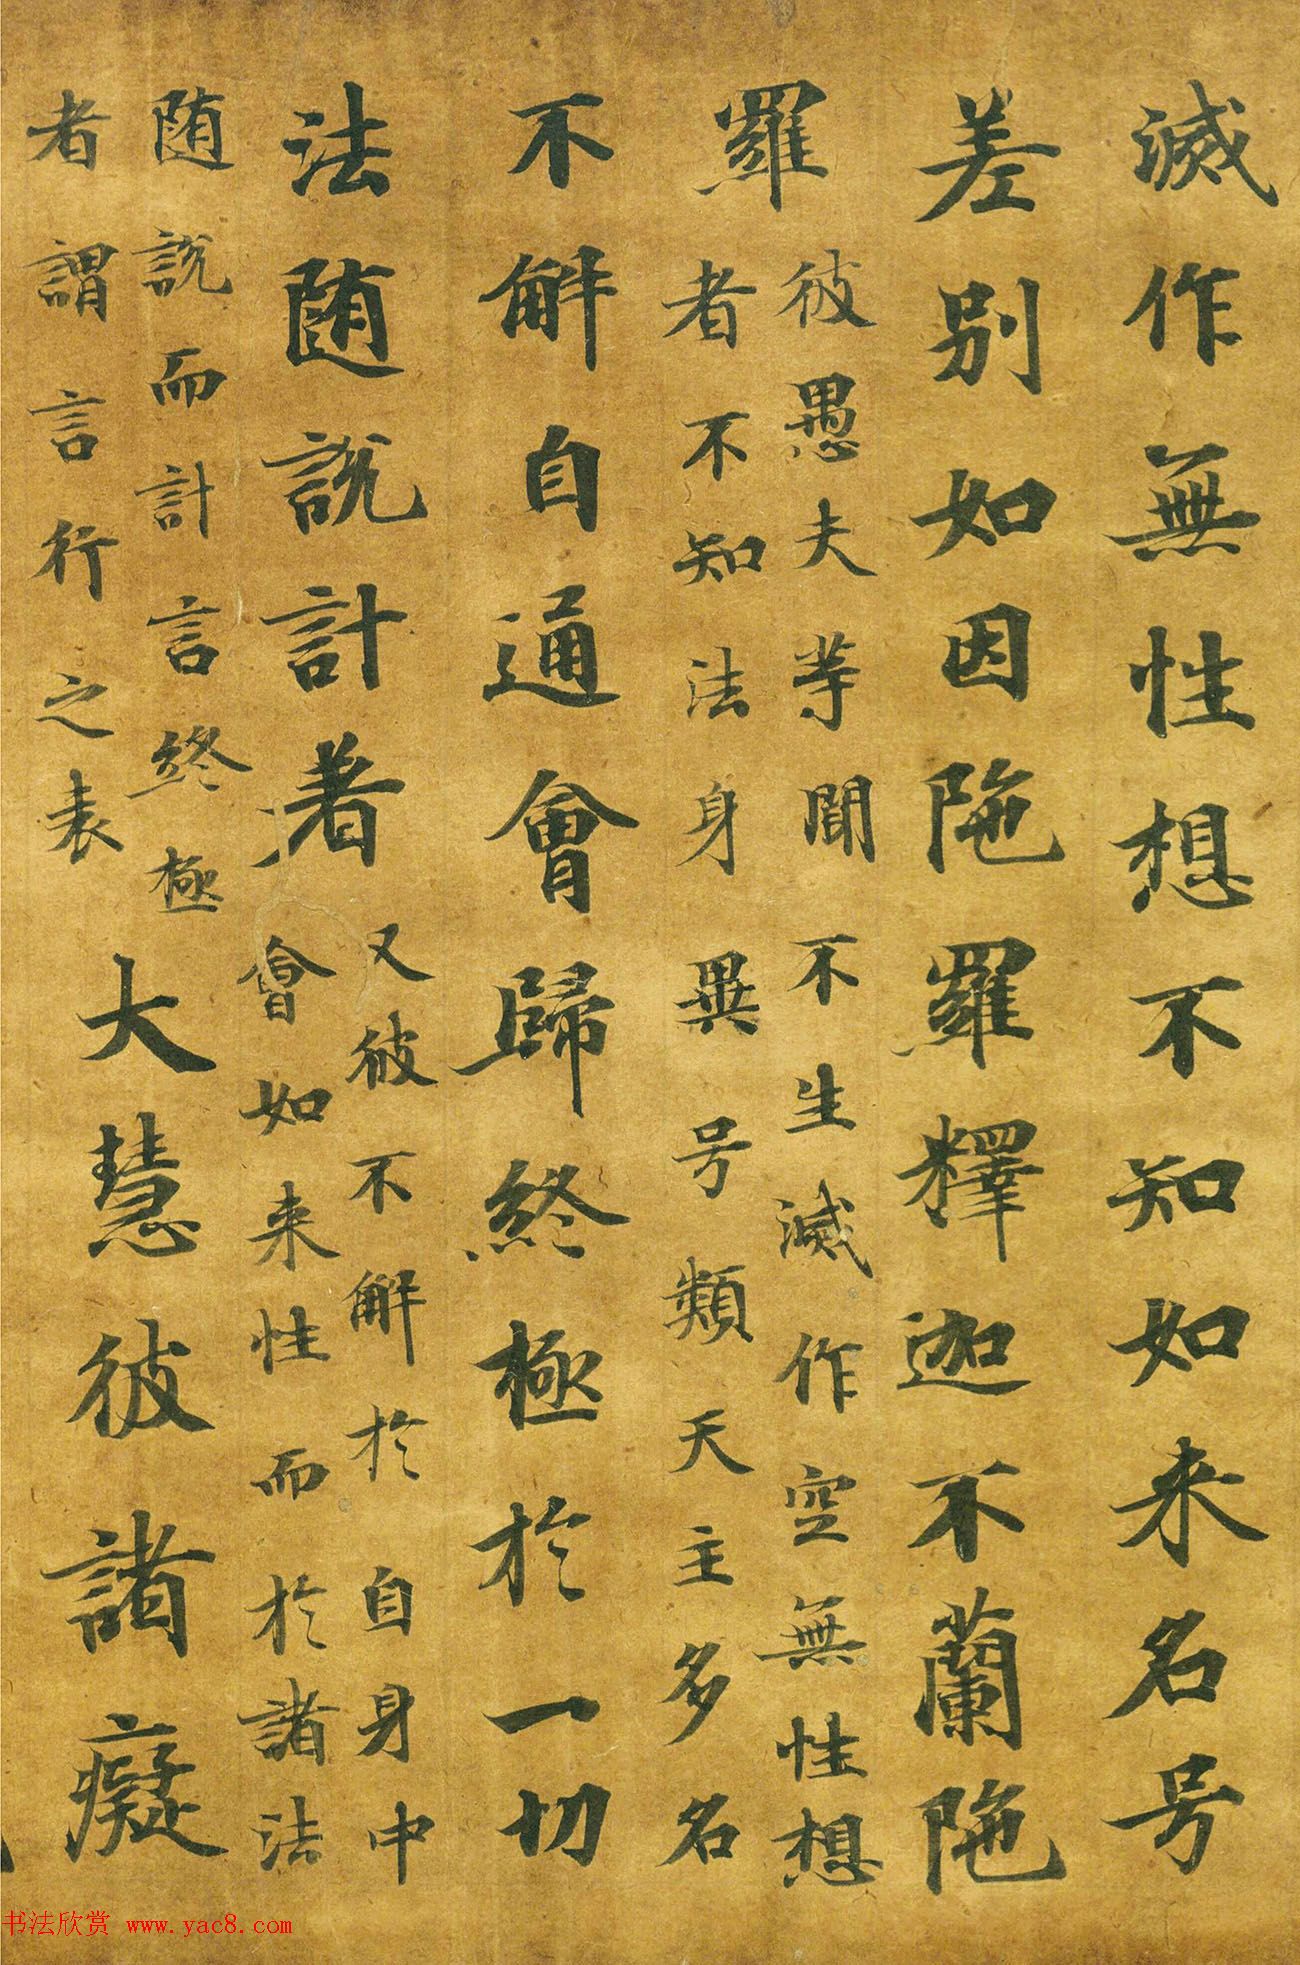 滅作無性想不知如来名号
差别如因陁羅釋迦不蘭陁
羅
彼愚夫等聞不生滅作空無性想
者不知法身異号類天主多名
不解自通會歸終極於一切
法随說計著
又彼不解於自身中
會如来性而於諸法
随說而計言終極
者謂言行之表
大慧彼諸癡
书法欣赏 www.yac8.com